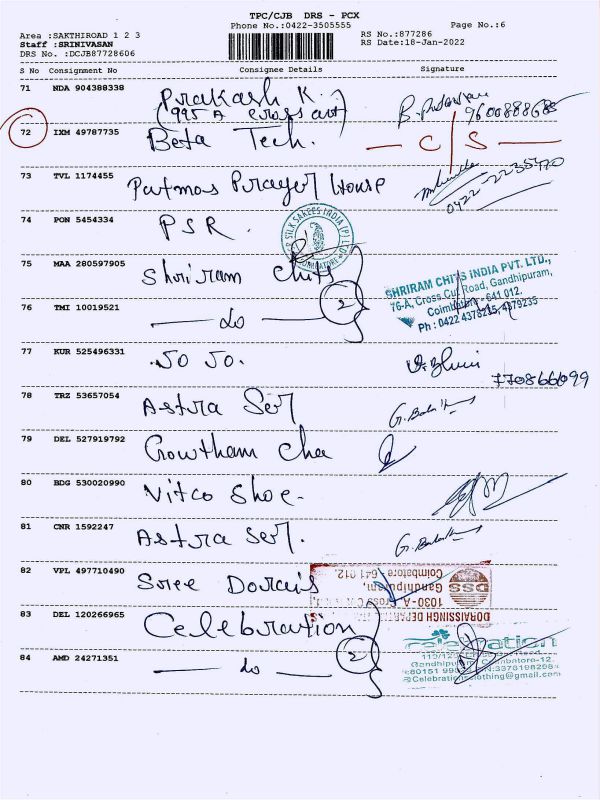 TPC/CJB DRS - PCX
Phone No.:0422-3505555 Page No.:6
Area :SAKTHIROAD 1 2 3 RS No.:877286
Staff :SRINIVASAN RS Date:18-Jan-2022
DRS No. :DCJB87728606
S No Consignment No Consignee Details Signature
71 NDA 904388338 Prakash K.
(995 A cross cut) 9600888685
72 IXM 49787735 Beta Tech. — C / S —
73 TVL 1174455 Patmos Prayer House 0422-2235470
74 PON 5454334 PSR.
SILK SAREES INDIA (P) LTD
COIMBATORE
75 MAA 280597905 Shriram Chits
SHRIRAM CHITS INDIA PVT. LTD.,
76-A, Cross Cut Road, Gandhipuram,
Coimbatore - 641 012.
Ph : 0422 4378235, 4379235
76 TMI 10019521 — do — 2
77 KUR 525496331 Jo Jo.
770866099
78 TRZ 53657054 Astra Ser
79 DEL 527919792 Gowtham Cha
80 BDG 530020990 Vitco Shoe.
81 CNR 1592247 Astra Ser.
82 VPL 497710490 Sree Dorais
DORAISINGH DEPARTM
1030-A Cross Cut
Gandhipuram,
Coimbatore - 641 012.
DSS
83 DEL 120266965 Celebration
celebration
Gandhipuram, Coimbatore-12.
Celebrationsclothing@gmail.com
84 AMD 24271351 — do — 2